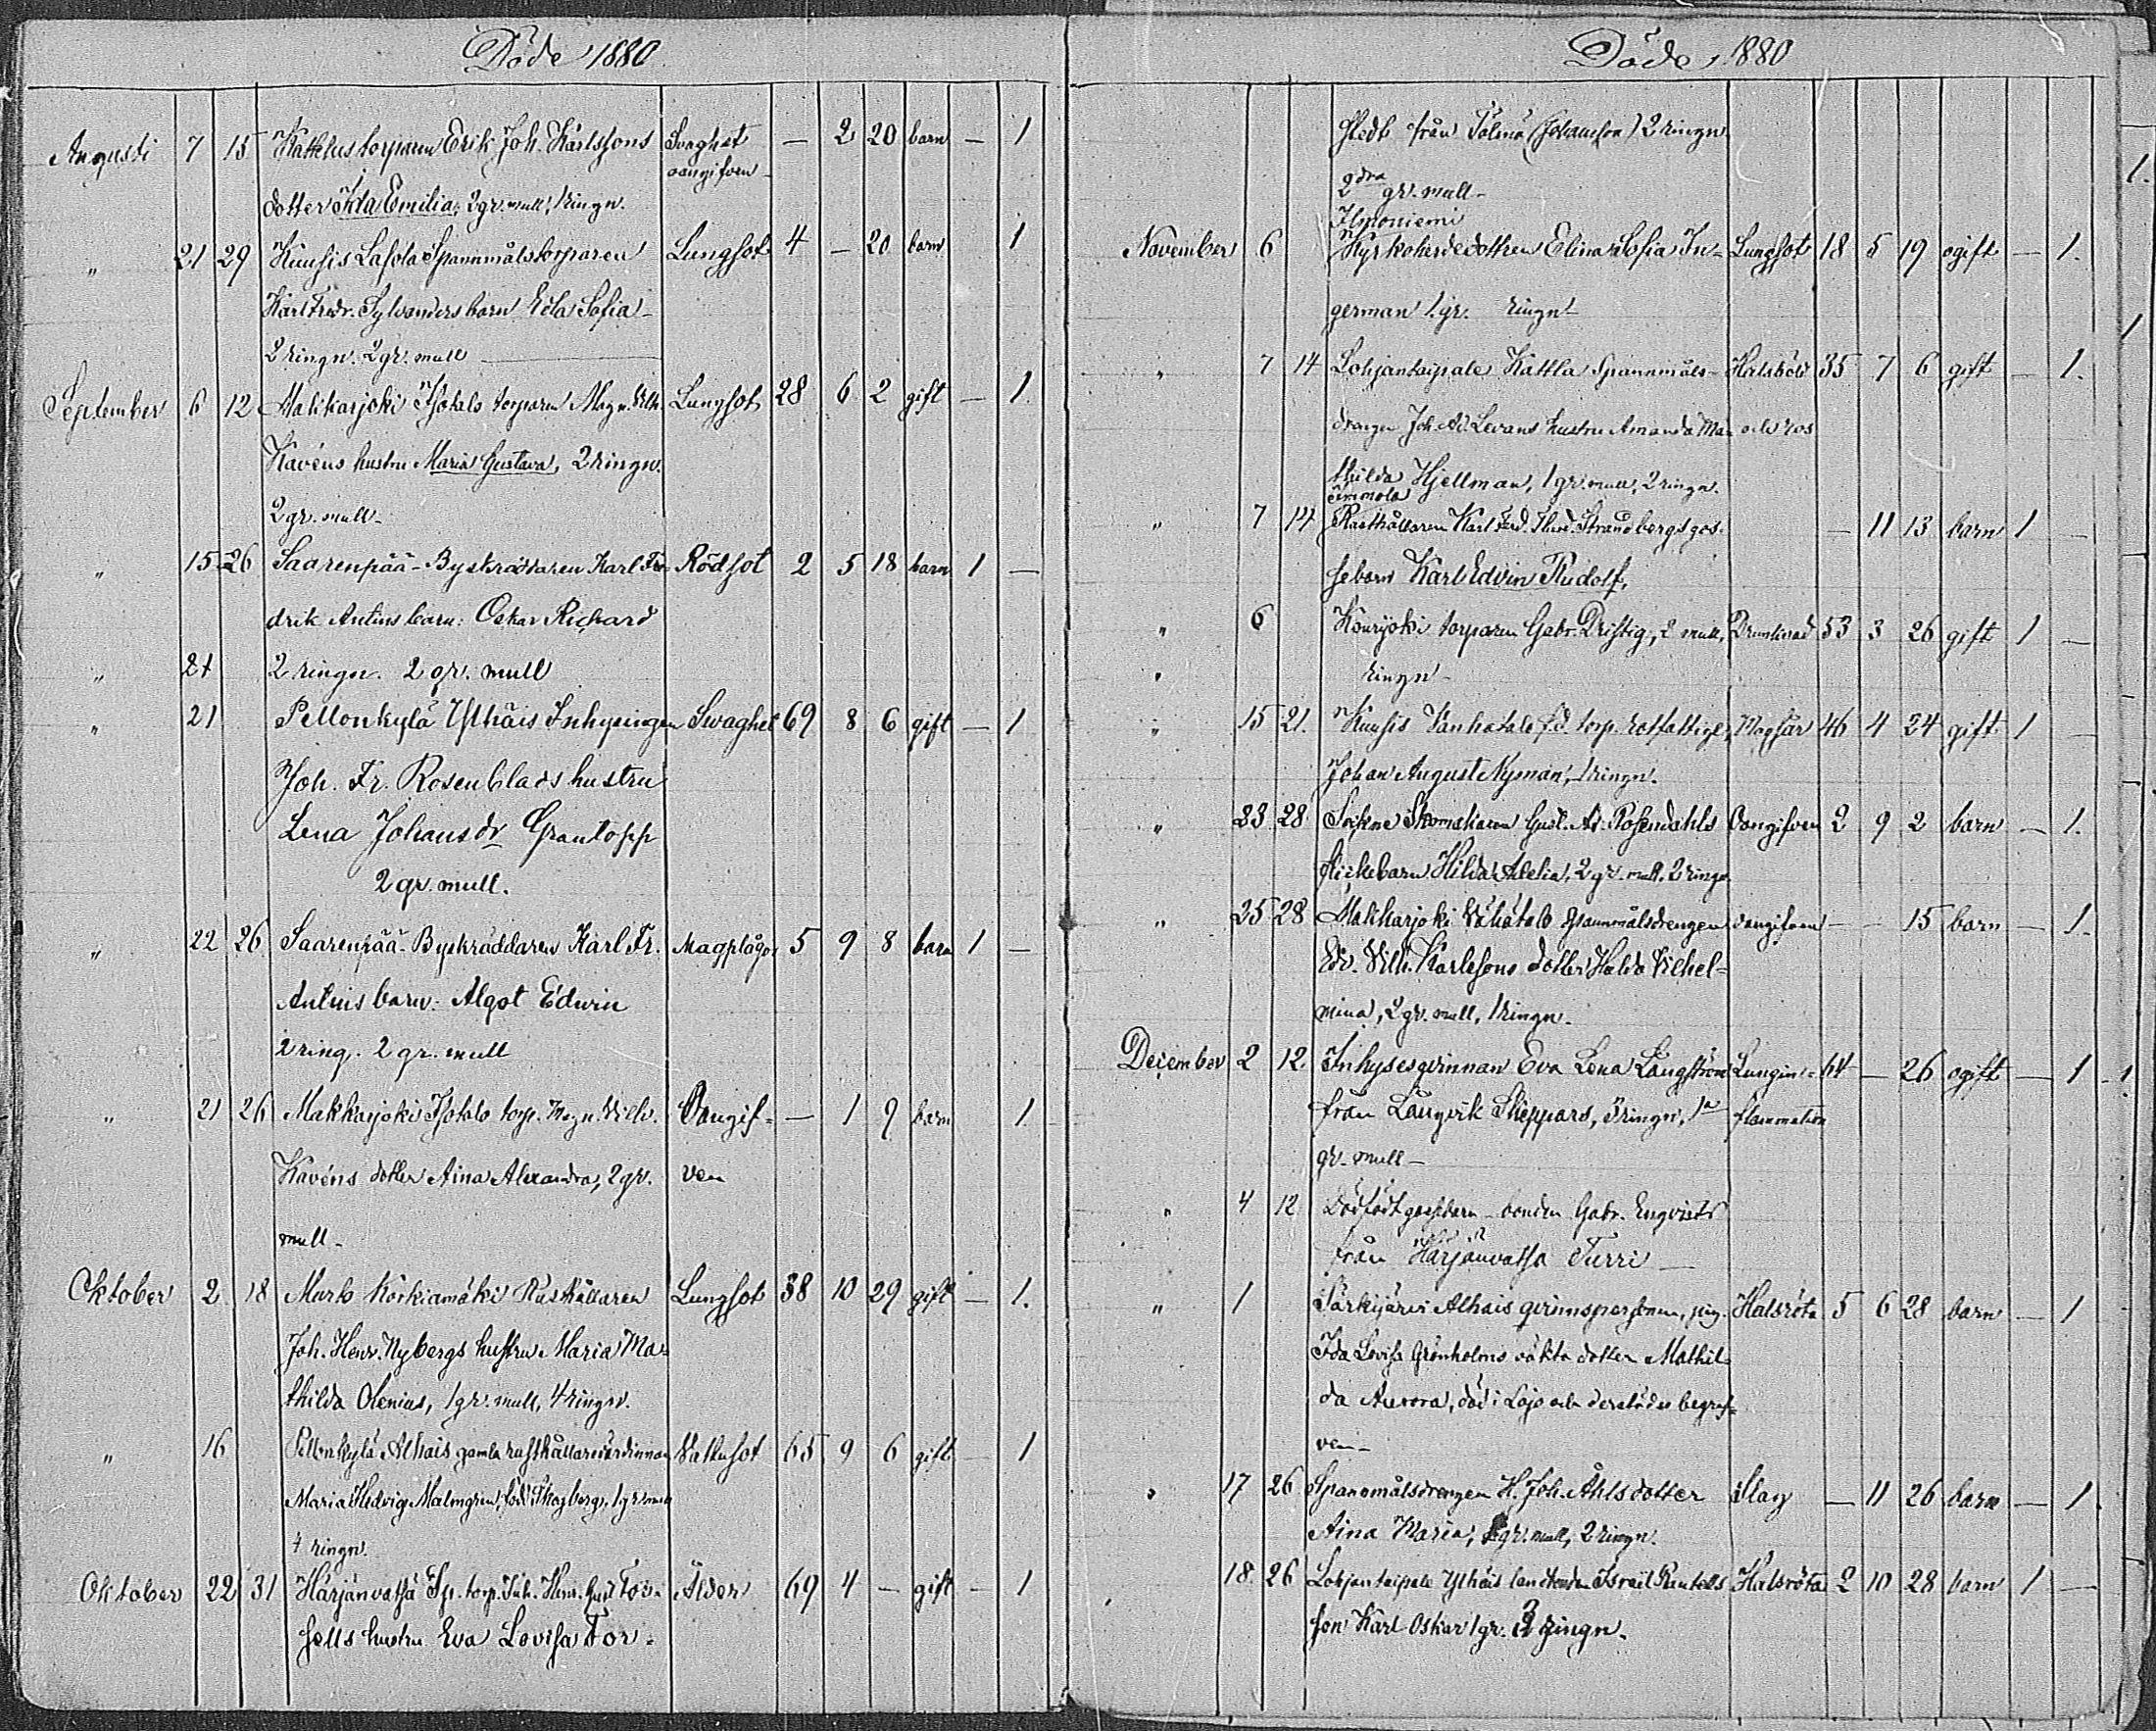 Döde 1880
Augusti 7 15 Kattlus torparen Erik Joh. Karlssons Svaghet — 2 20 barn — 1
dotter Ida Emilia, 2 gr. mull, 1 ringn. oangifven
" 21 29 Kuusis Lasola Spannmålstorparen Lungsot 4 — 20 barn 1
Karl Fredr. Sylvanders barn Eda Sofia
2 ringn. 2 gr. mull
September 6 12 Makkarjoki Isotalo torparen Magn. Vilh. Lungsot 28 6 2 gift — 1
Kavéns hustru Maria Gustava, 2 ringn.
2 gr. mull
" 15 26 Saarenpää Byskräddaren Karl Fre- Rödsot 2 5 18 barn 1 —
drik Antins barn: Oskar Richard
" 21 2 ringn. 2 gr. mull
" 21 Pellonkylä Ylhäis Inhysingen Swaghet 69 8 6 gift — 1
Joh. Fr. Rosenblads hustru
Lena Johansdr Grantopp
2 gr. mull.
" 22 26 Saarenpää Byskräddaren Karl Fr. Magplågor 5 9 8 barn 1 —
Antins barn: Algot Edwin
2 ring. 2 gr. mull
" 21 26 Makkarjoki Isotalo torp. Magn. Vilh. Oangif- — 1 9 barn 1
Kavéns dotter Aina Alexandra, 2 gr. ven
mull
Oktober 2 18 Mark Körkiamäki Rusthållaren Lungsot 38 10 29 gift — 1.
Joh. Henr. Nybergs hustru Maria Ma-
thilda Olenius, 1 gr. mull, 4 ringn.
" 16 Pellonkylä Alhais gamla rusthållarevärdinnan Vattusot 65 9 6 gift 1
Maria Hedvig Malmgren, född Skogberg, 1 gr. mull
4 ringn.
Oktober 22 31 Härjänvatsa Sp. torp. Joh. Henr. Gust. Tor- Ålder 69 4 — gift — 1
sells hustru Eva Lovisa Tor-
Döde 1880
stedt från Tolma (Johansson) 2 ringn.
2dra gr. mull
Ilmoniemi
November 6 Kyrkoherdedottren Elina Sofia In- Lungsot 18 5 19 ogift — 1.
german 1 gr. ringn
" 7 14 Lohjantaipale Kattla Spannmåls- Halsböld 35 7 6 gift — 1.
drängen Joh. Ad. Levans hustru Amanda Ma- och ros
thilda Hjellman, 1 gr. mull, 2 ringn.
" 7 14 Rusthållaren Karl Ferd. Strandbergs gos- — 11 13 barn 1 —
sebarn Karl Edvin Rudolf,
" 6 Kourjoki torparen Gabr. Driftig, 2 mull, Drunknad 53 3 26 gift 1 —
" ringn
" 15 21. Kuusis Vanhatalo f.d. torp. rotfattige Magsår 46 4 24 gift 1 —
Johan August Nyman, 1 ringn.
" 23 28 Skomakaren Gust. Ad. Rosendahls Oangifven 2 9 2 barn — 1.
flickebarn Hilda Adelia, 2 gr. mull, 2 ringn
" 25 28 Makkarjoki Vähätalo spannmålsdrengen oangifven — — 15 barn — 1.
Edv. Vilh. Karlssons dotter Hulda Vilhel-
mina, 2 gr. mull, 1 ringn.
December 2 12 Inhysesqvinnan Eva Lena Långström Lungin- 64 — 26 ogift — 1
från Långvik Skeppars, 3 ringn, 1a flammation
gr. mull
" 4 12 Dödfödt gossbarn bonden Gabr. Enqvists
från Härjänvatsa Turri
" 1 Särkijärvi Alhais qvinnspersonen, pig. Halsröta 5 6 28 barn — 1
Ida Lovisa Grönholms oäkta dotter Mathil-
da Aurora, död i Lojo och derstädes begraf-
ven
" 17 26 Spannmålsdrengen H. Joh. Åhls dotter Slag — 11 26 barn — 1.
Aina Maria, gr. mull, 2 ringn.
18 26 Lohjantaipale Ylhäis landbonden Israil Rentells Halsröta 2 10 28 barn 1 —
son Karl Oskar 1 gr. 2 ringn.